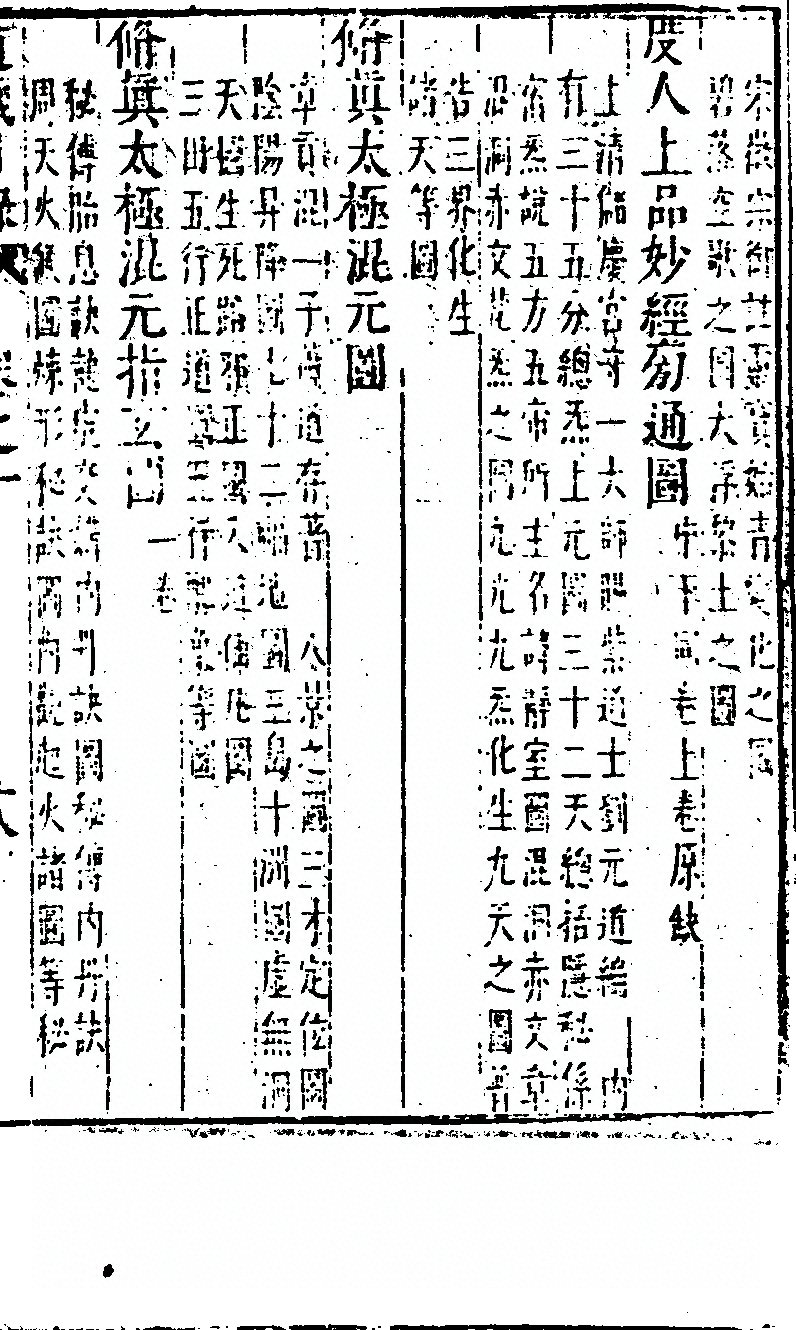 宋徽宗御註靈寶始青變化之圖
碧落空歌之圖大浮黎土之圖
度人上品妙經旁通圖 中下同卷上卷原缺
上清儲慶宮守一大師賜紫道士劉元道編 內
有三十五分總炁上元圖三十二天總括隱秘係
宿炁說五方五帝所主名諱靜室圖混洞赤文章
混洞赤文梵炁之圖九光九炁化生九天之圖普
告三界化生
諸天等圖
修眞太極混元圖
章貢混一子蕭道存著 八景之圖三才定位圖
陰陽昇降圖七十二福地圖三島十洲圖虛無洞
天圖生死路邪正圖人道仙凡圖
三田五行正道圖五行配象等圖
修眞太極混元指玄圖 一卷
秘傳胎息訣龍虎交媾內丹訣圖秘傳內丹訣
周天火候圖煉形秘訣圖內觀起火諸圖等秘